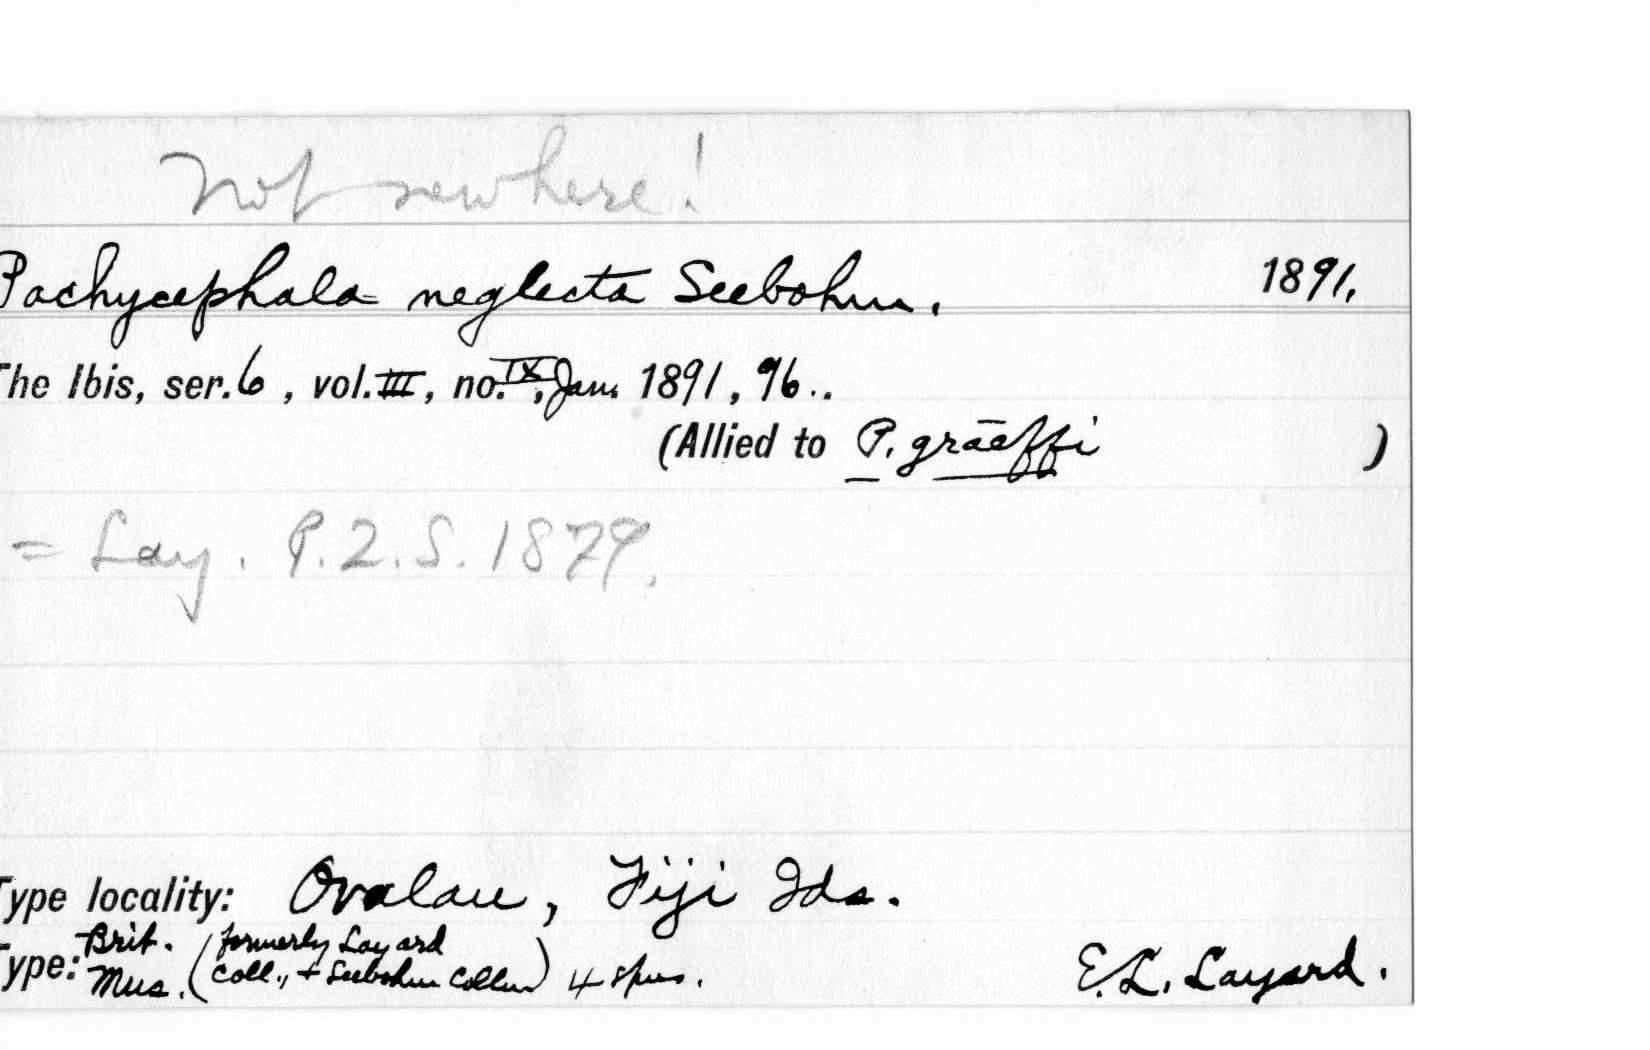 Not new here!
Pachycephala neglecta Seebohm. 1891.
The Ibis, ser. 6, vol. III, no. IX, Jan. 1891, 96..
(Allied to P. graeffi )
= Lay. P.Z.S. 1879.
Type locality: Ovalau, Fiji Ids.
Type: Brit. Mus. (formerly Layard Coll., + Seebohm Colln) 4 spms. E. L. Layard.